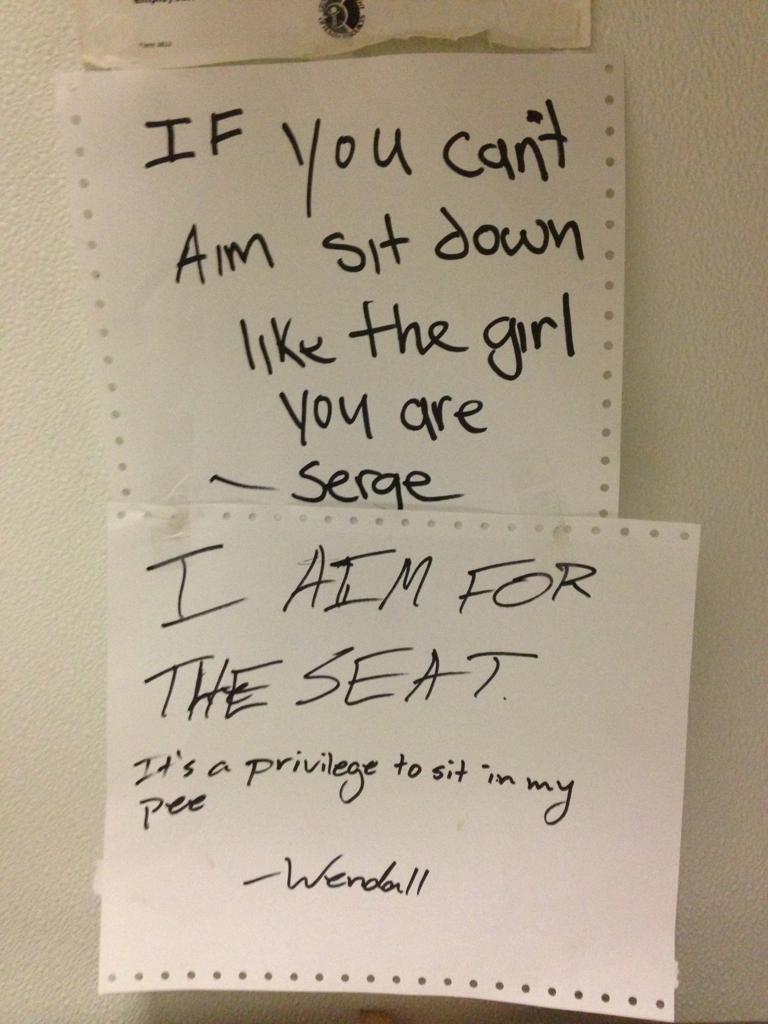 IF you can't
Aim sit down
like the girl
you are
~ Serge
I AIM FOR
THE SEAT.
It's a privilege to sit in my
pee
-Wendall